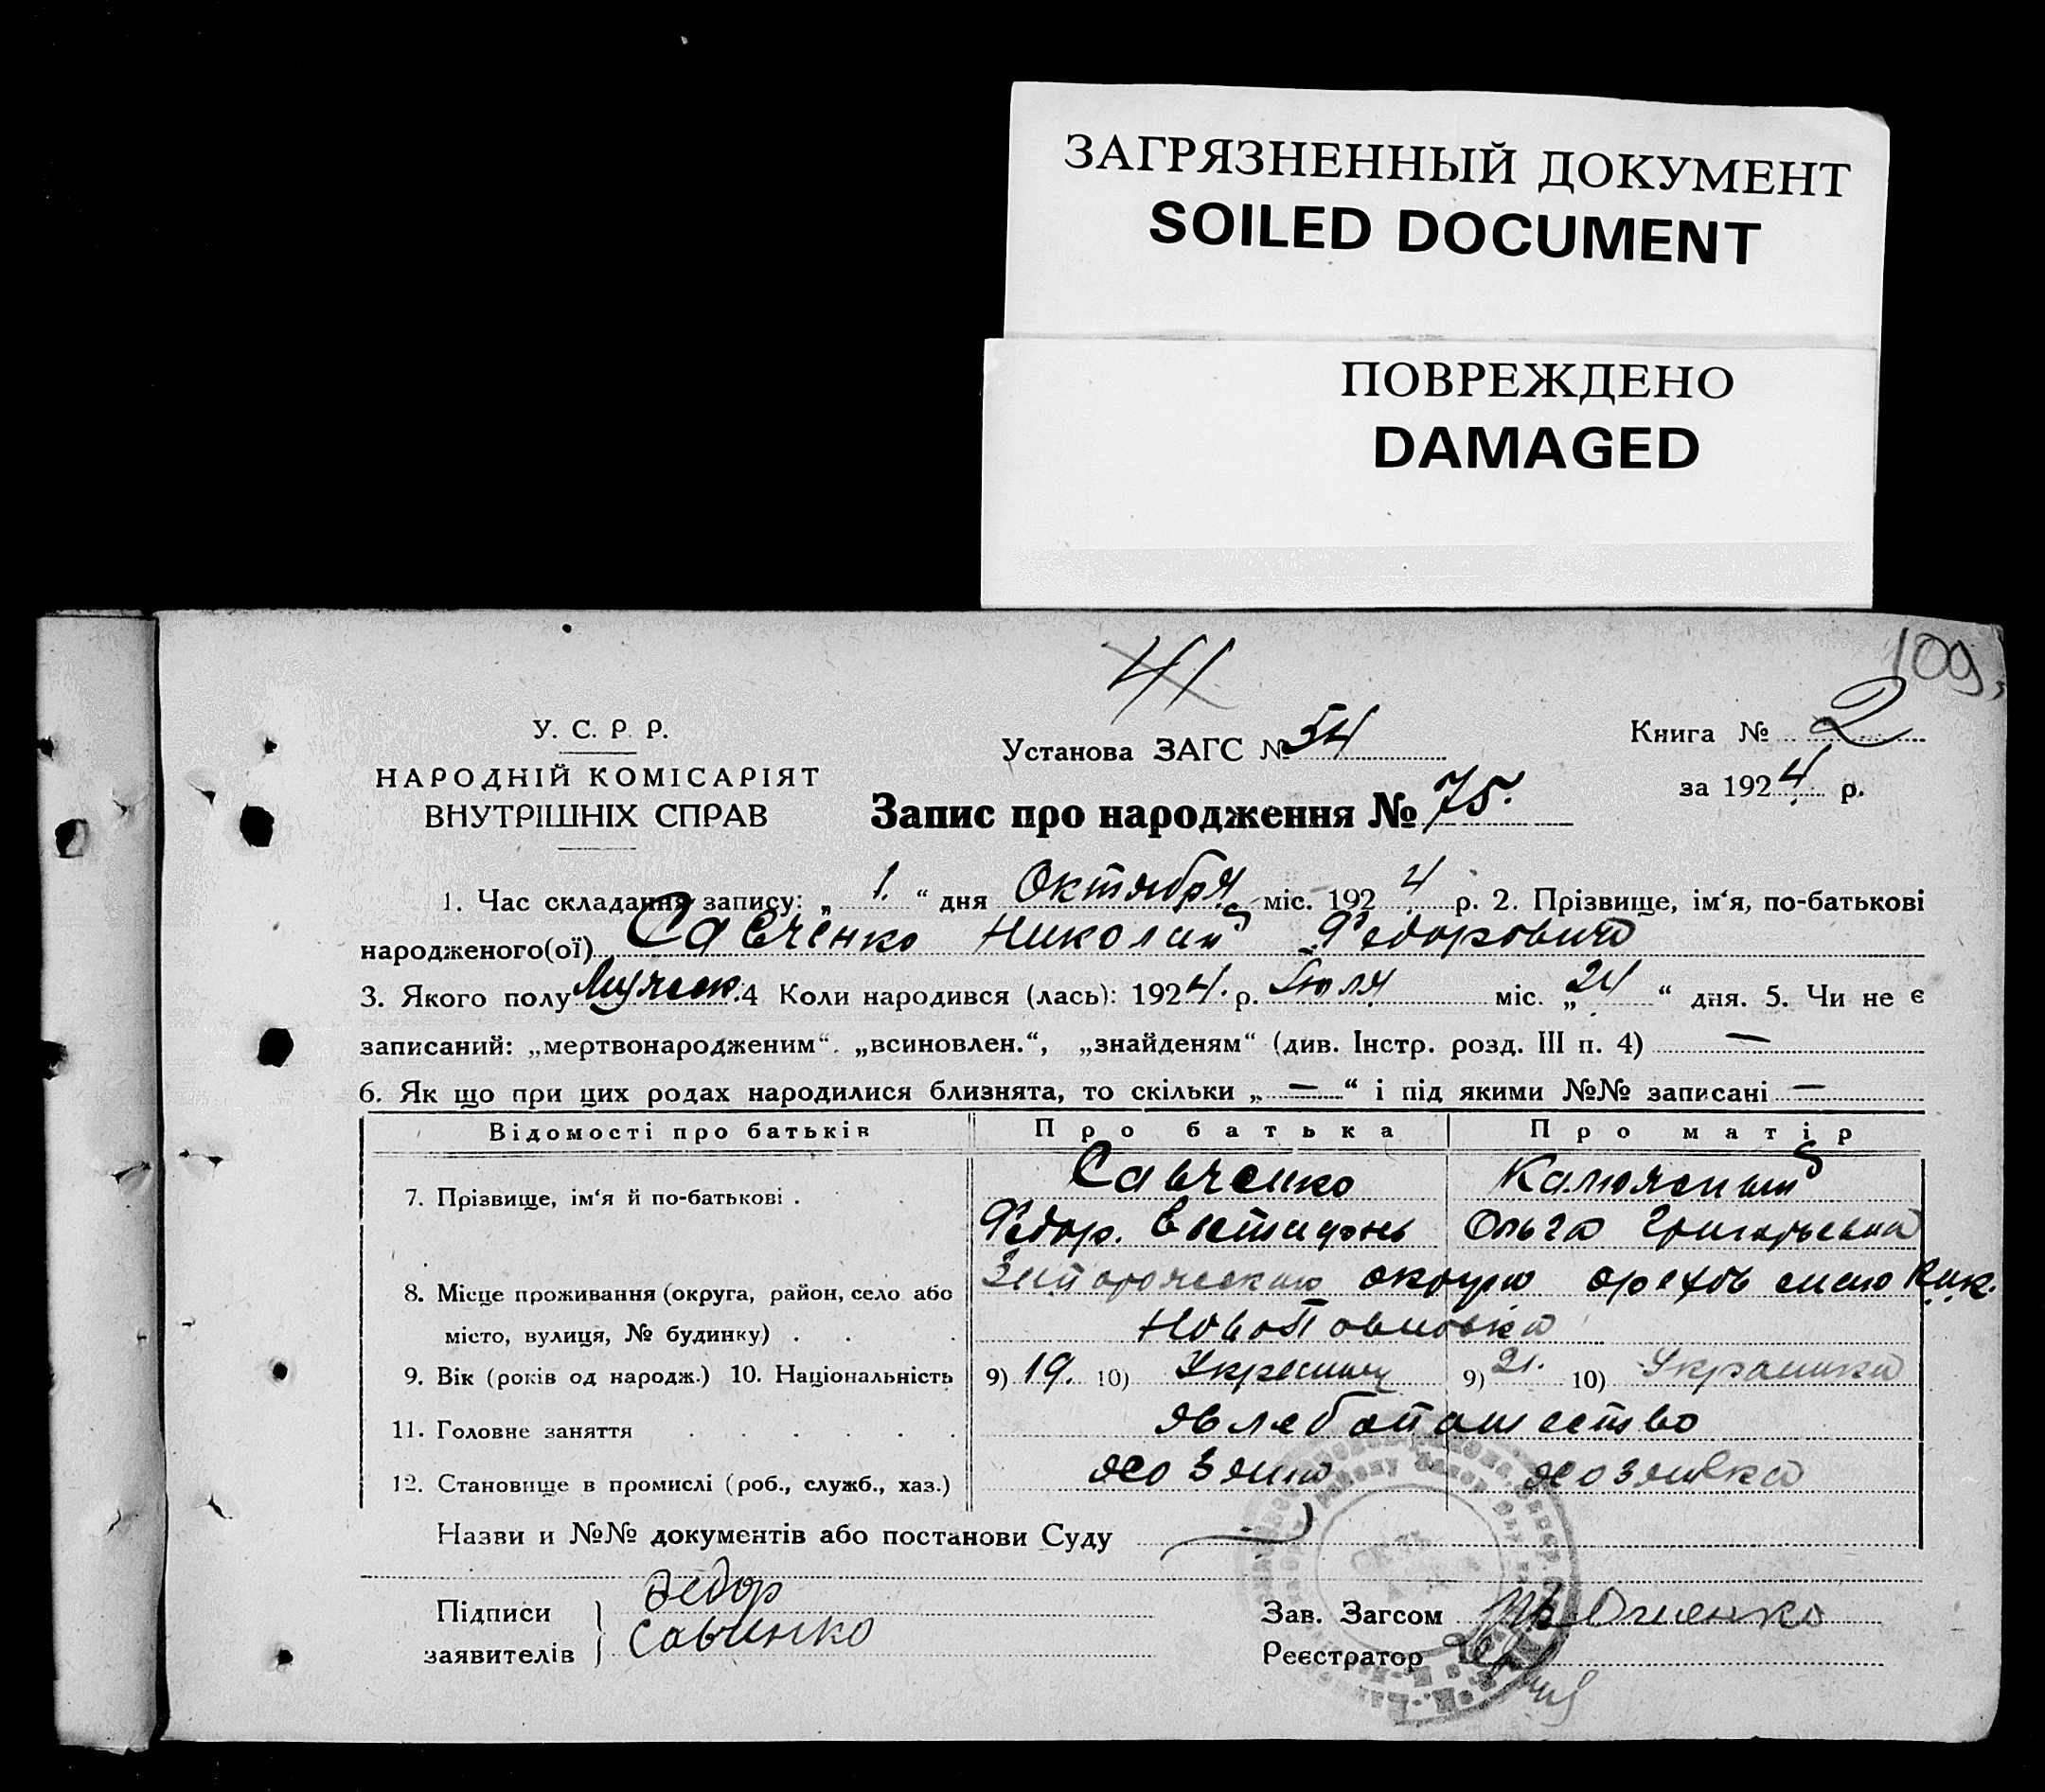 ЗАГРЯЗНЕННЫЙ ДОКУМЕНТ
SOILED DOCUMENT
ПОВРЕЖДЕНО
DAMAGED
41
109
У. С. Р. Р.
НАРОДНІЙ КОМІСАРІЯТ
ВНУТРІШНІХ СПРАВ
Установа ЗАГС № 54
Книга № 2
за 1924 р.
Запис про народження № 75.
1. Час складання запису: „ 1. “ дня Октября міс. 1924 р. 2. Прізвище, ім‘я, по-батькові
народженого(ої) Савченко Николай Федорович
3. Якого полу Мужск. 4 Коли народився (лась): 1924. р. Июля міс. „24“ дня. 5. Чи не є
записаний: „мертвонародженим“. „всиновлен.“, „знайденям“ (див. Інстр. розд. III п. 4) —
6. Як що при цих родах народилися близнята, то скільки „ — “ і під якими №№ записані —
Відомості про батьків Про батька Про матір
7. Прізвище, ім‘я й по-батькові . Савченко
Федор. Ольга Григорьевна
8. Місце проживання (округа, район, село або округи орехов
місто, вулиця, № будинку) . . .
9. Вік (років од народж.) 10. Національність 9) 19. 10) Украинец 9) 21. 10) Украинка
11. Головне заняття . . . . . .
12. Становище в промислі (роб., служб., хаз.) хозяин хозяйка
Назви и №№ документів або постанови Суду
Підписи Федор
заявителів Савченко
Зав. Загсом
Реєстратор